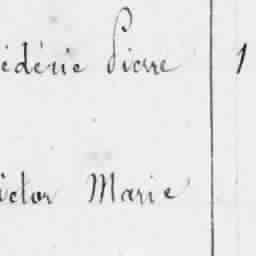 édéric Pierre 1
ictor Marie